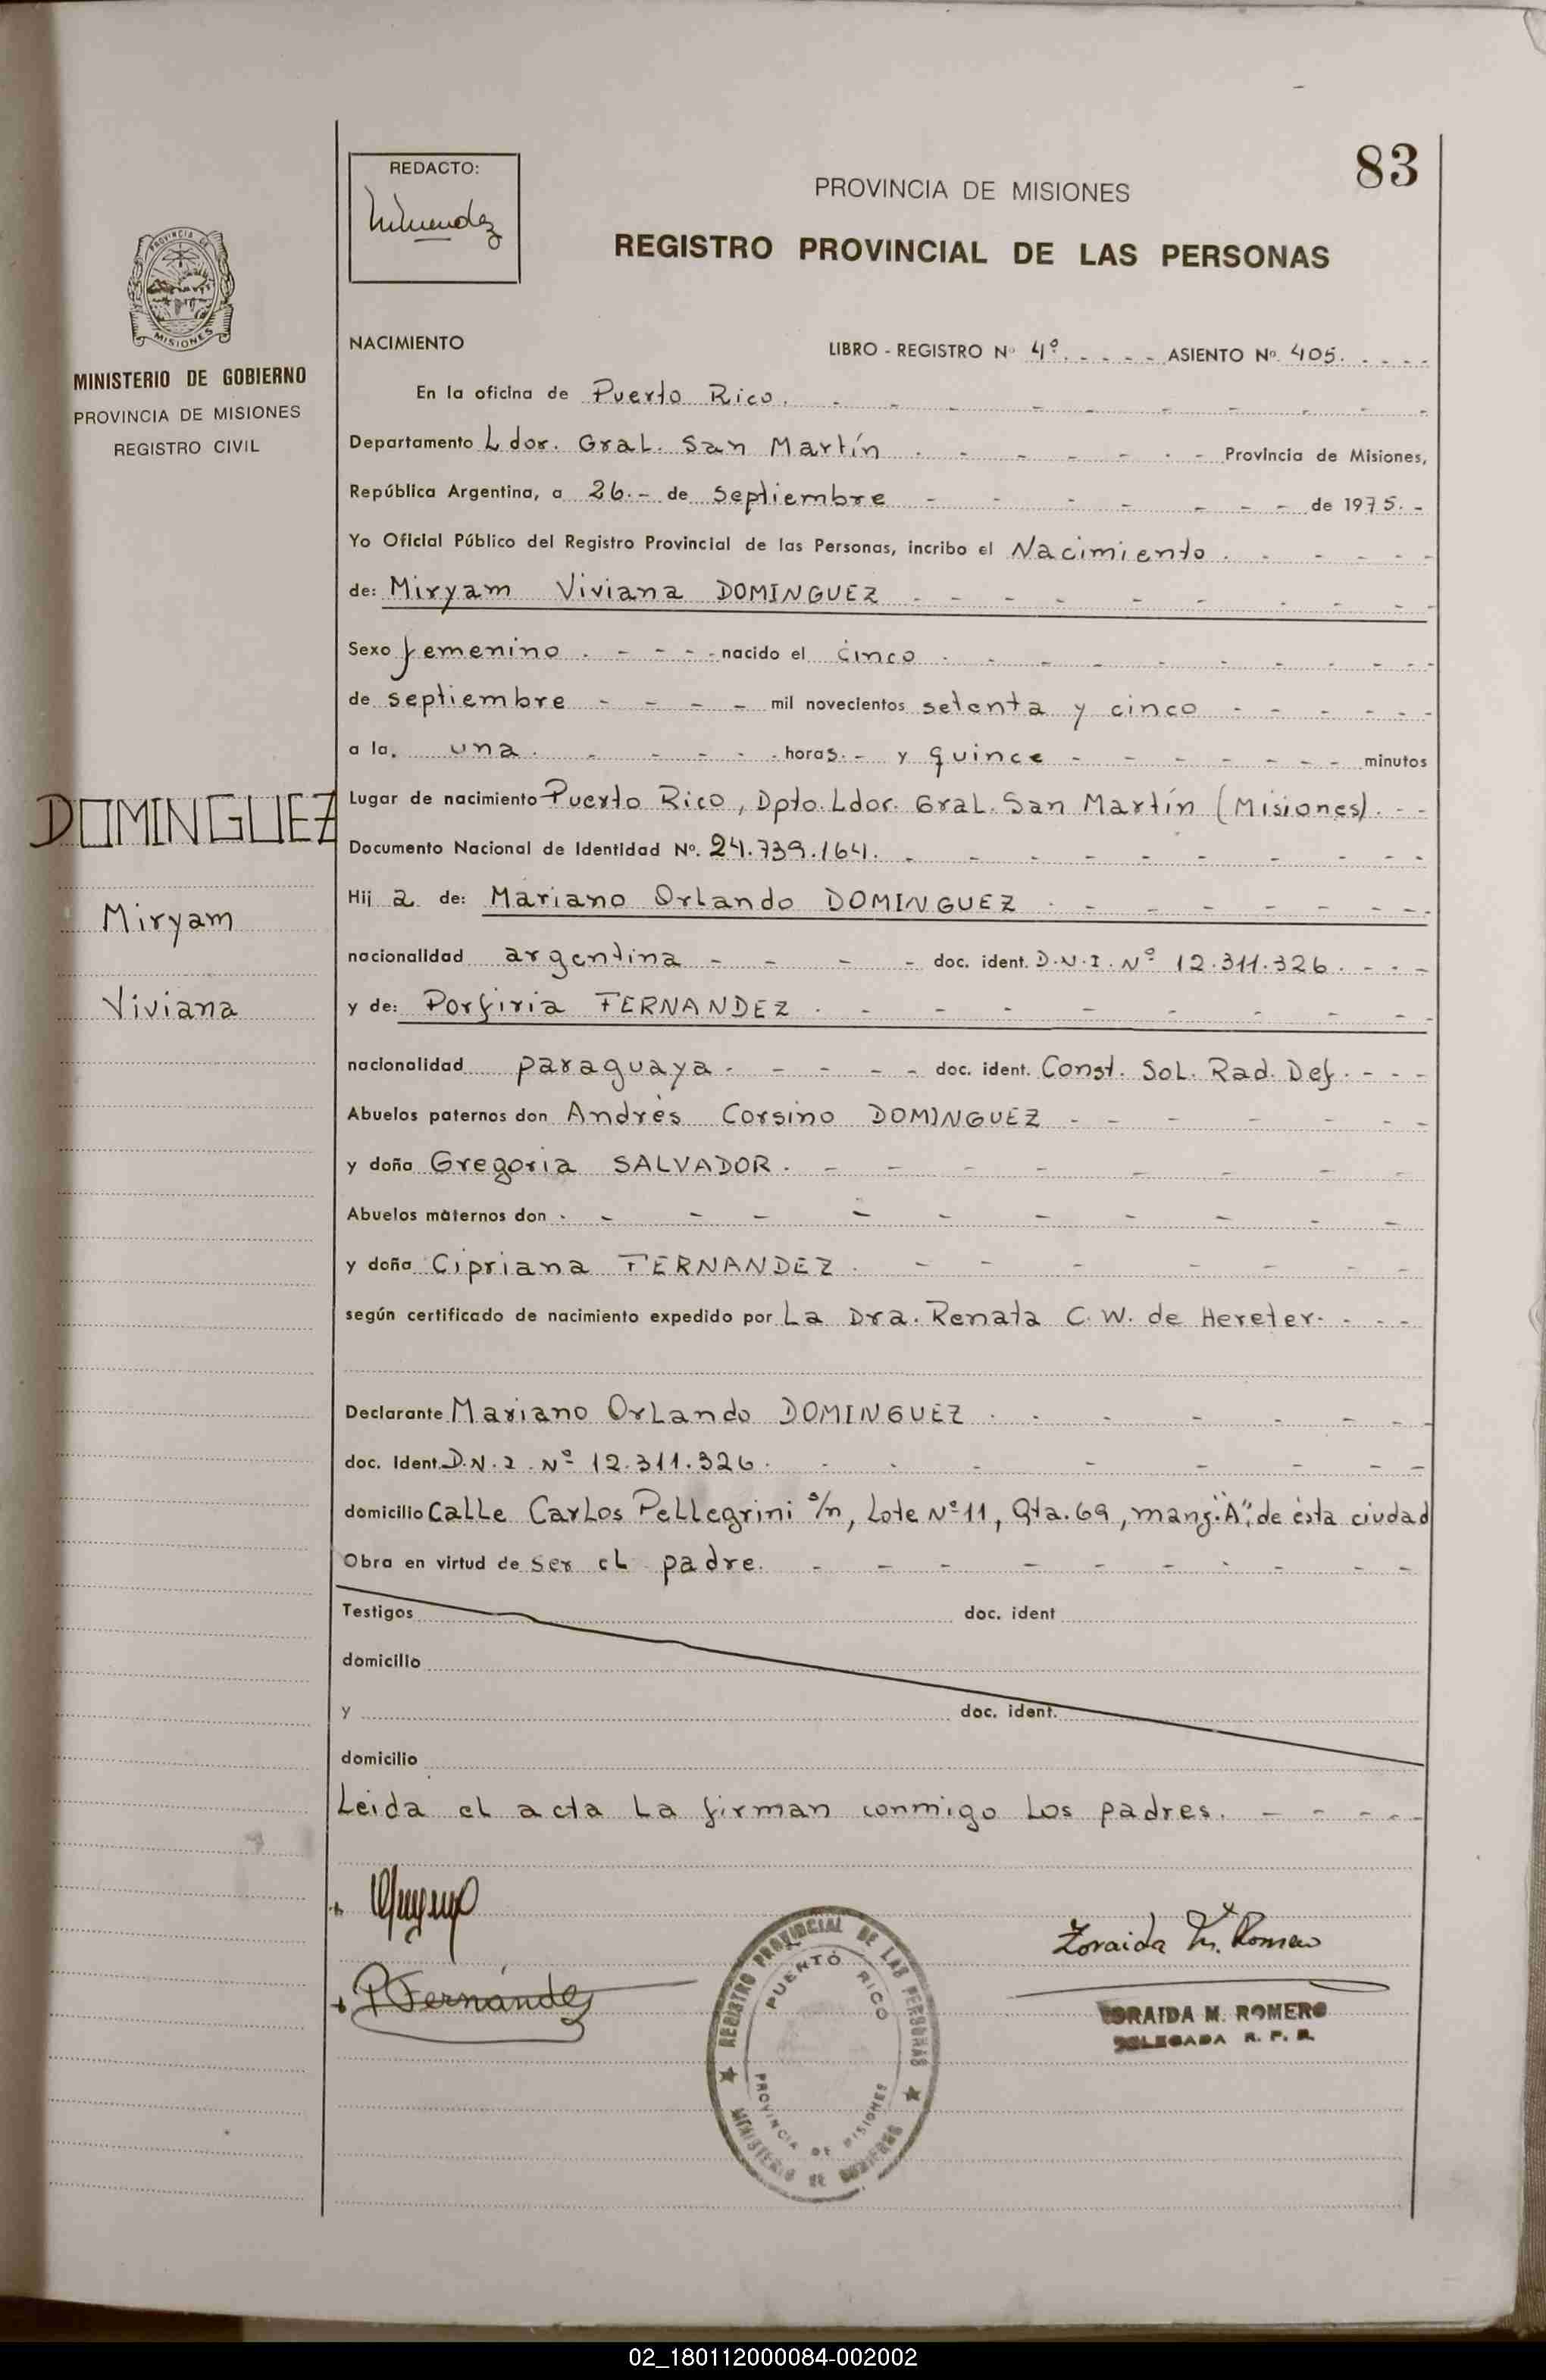 83
REDACTO:
PROVINCIA DE MISIONES
REGISTRO PROVINCIAL DE LAS PERSONAS
PROVINCIA DE
MISIONES
MINISTERIO DE GOBIERNO
PROVINCIA DE MISIONES
REGISTRO CIVIL
DOMINGUEZ
Miryam
Viviana
NACIMIENTO LIBRO - REGISTRO Nº 4º. - - - - ASIENTO Nº. 405. - - - -
En la oficina de Puerto Rico.
Departamento Ldor. Gral. San Martín - - - - Provincia de Misiones,
República Argentina, a 26.- de septiembre - - - - de 1975.-
Yo Oficial Público del Registro Provincial de las Personas, incribo el Nacimiento.
de: Miryam Viviana DOMINGUEZ
Sexo femenino. - - - nacido el cinco
de septiembre - - - - mil novecientos setenta y cinco - - - -
a la. una. - - - - horas.- y quince - - - - minutos
Lugar de nacimiento Puerto Rico, Dpto. Ldor. Gral. San Martín (Misiones). - -
Documento Nacional de Identidad Nº. 24.739.164.
Hij a de: Mariano Orlando DOMINGUEZ
nacionalidad argentina - - - - doc. ident. D.N.I. Nº 12.311.326. - - -
y de: Porfiria FERNANDEZ
nacionalidad paraguaya - - - - doc. ident. Const. Sol. Rad. Def. - - -
Abuelos paternos don Andrès Corsino DOMINGUEZ
y doña Gregoria SALVADOR.
Abuelos maternos don - - - -
y doña Cipriana FERNANDEZ.
según certificado de nacimiento expedido por La Dra. Renata C. W. de Hereter. - - -
Declarante Mariano Orlando DOMINGUEZ
doc. Ident. D.N.I. Nº 12.311.326.
domicilio Calle Carlos Pellegrini s/n, Lote Nº 11, Qta. 69, manz. "A", de èsta ciudad
Obra en virtud de ser el padre.
Testigos doc. ident
domicilio
y doc. ident.
domicilio
Leida el acta la firman conmigo los padres. - - - -
P Fernández
Zoraida M. Romero
ZORAIDA M. ROMERO
DELEGADA R. P. P.
REGISTRO PROVINCIAL DE LAS PERSONAS
PUERTO RICO
PROVINCIA DE MISIONES
MINISTERIO DE GOBIERNO
02_180112000084-002002